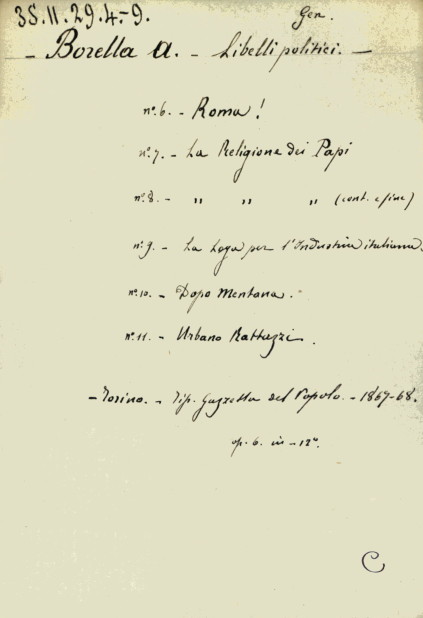 35.II.29.4-9.
Gen.
- Borella A. - Libelli politici. -
n.° 6. - Roma!
n.° 7. - La Religione dei Papi
n.° 8. - " " " (cont. e fine)
n.° 9. - La Lega per l'Industria italiana.
n.° 10. - Dopo Mentana.
n.° 11. - Urbano Rattazzi.
- Torino. - Tip. Gazzetta del Popolo. - 1867-68.
op. 6. in - 12°.
C